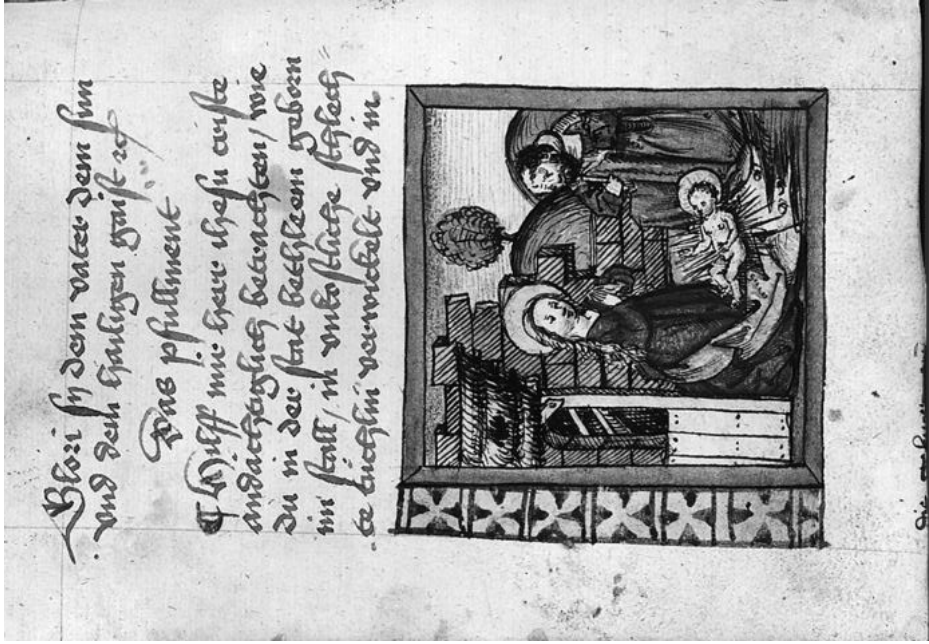 Glori sy dem vatter dem sun
vnd dem hailigen gaist ⁊c
Das pfullment
¶ Hilff mir herr ihesu criste
andächtiglich betrachten / wie
du in der stat bethleem geborn
im stall / in vnkostliche schlech
te tüchlin verwickelt vnd in